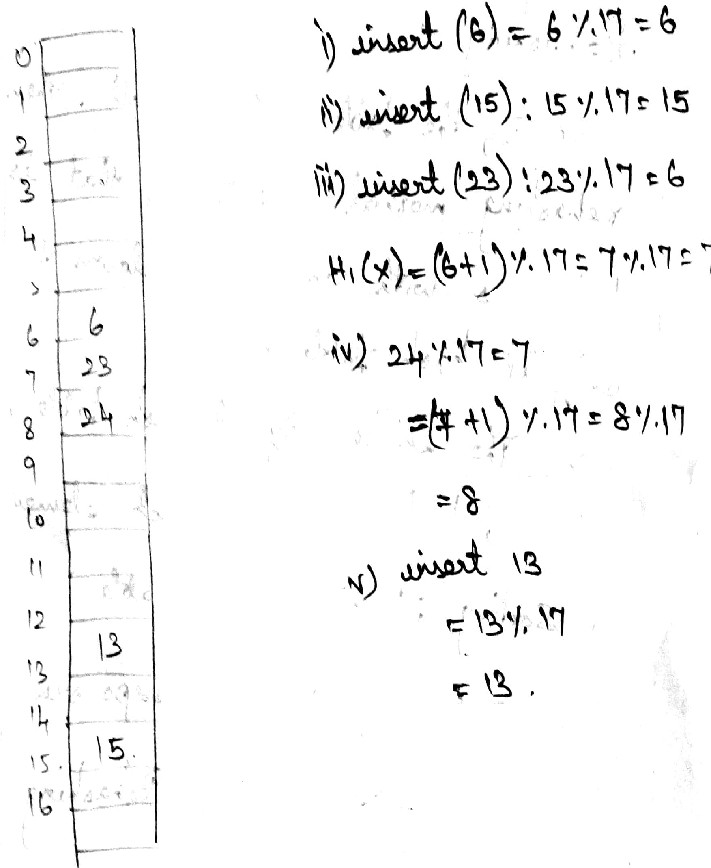 0
1
2
3
4
5
6 6
7 23
8 24
9
10
11
12
13 13
14
15. 15.
16
i) insert (6) = 6 %.17 = 6
ii) insert (15) : 15 %.17 = 15
iii) insert (23) : 23 %.17 = 6
H1(x) = (6+1) %.17 = 7 %.17 = 7
iv) 24 %.17 = 7
= (7 +1) %.17 = 8 %.17
= 8
v) insert 13
= 13 %.17
= 13 .